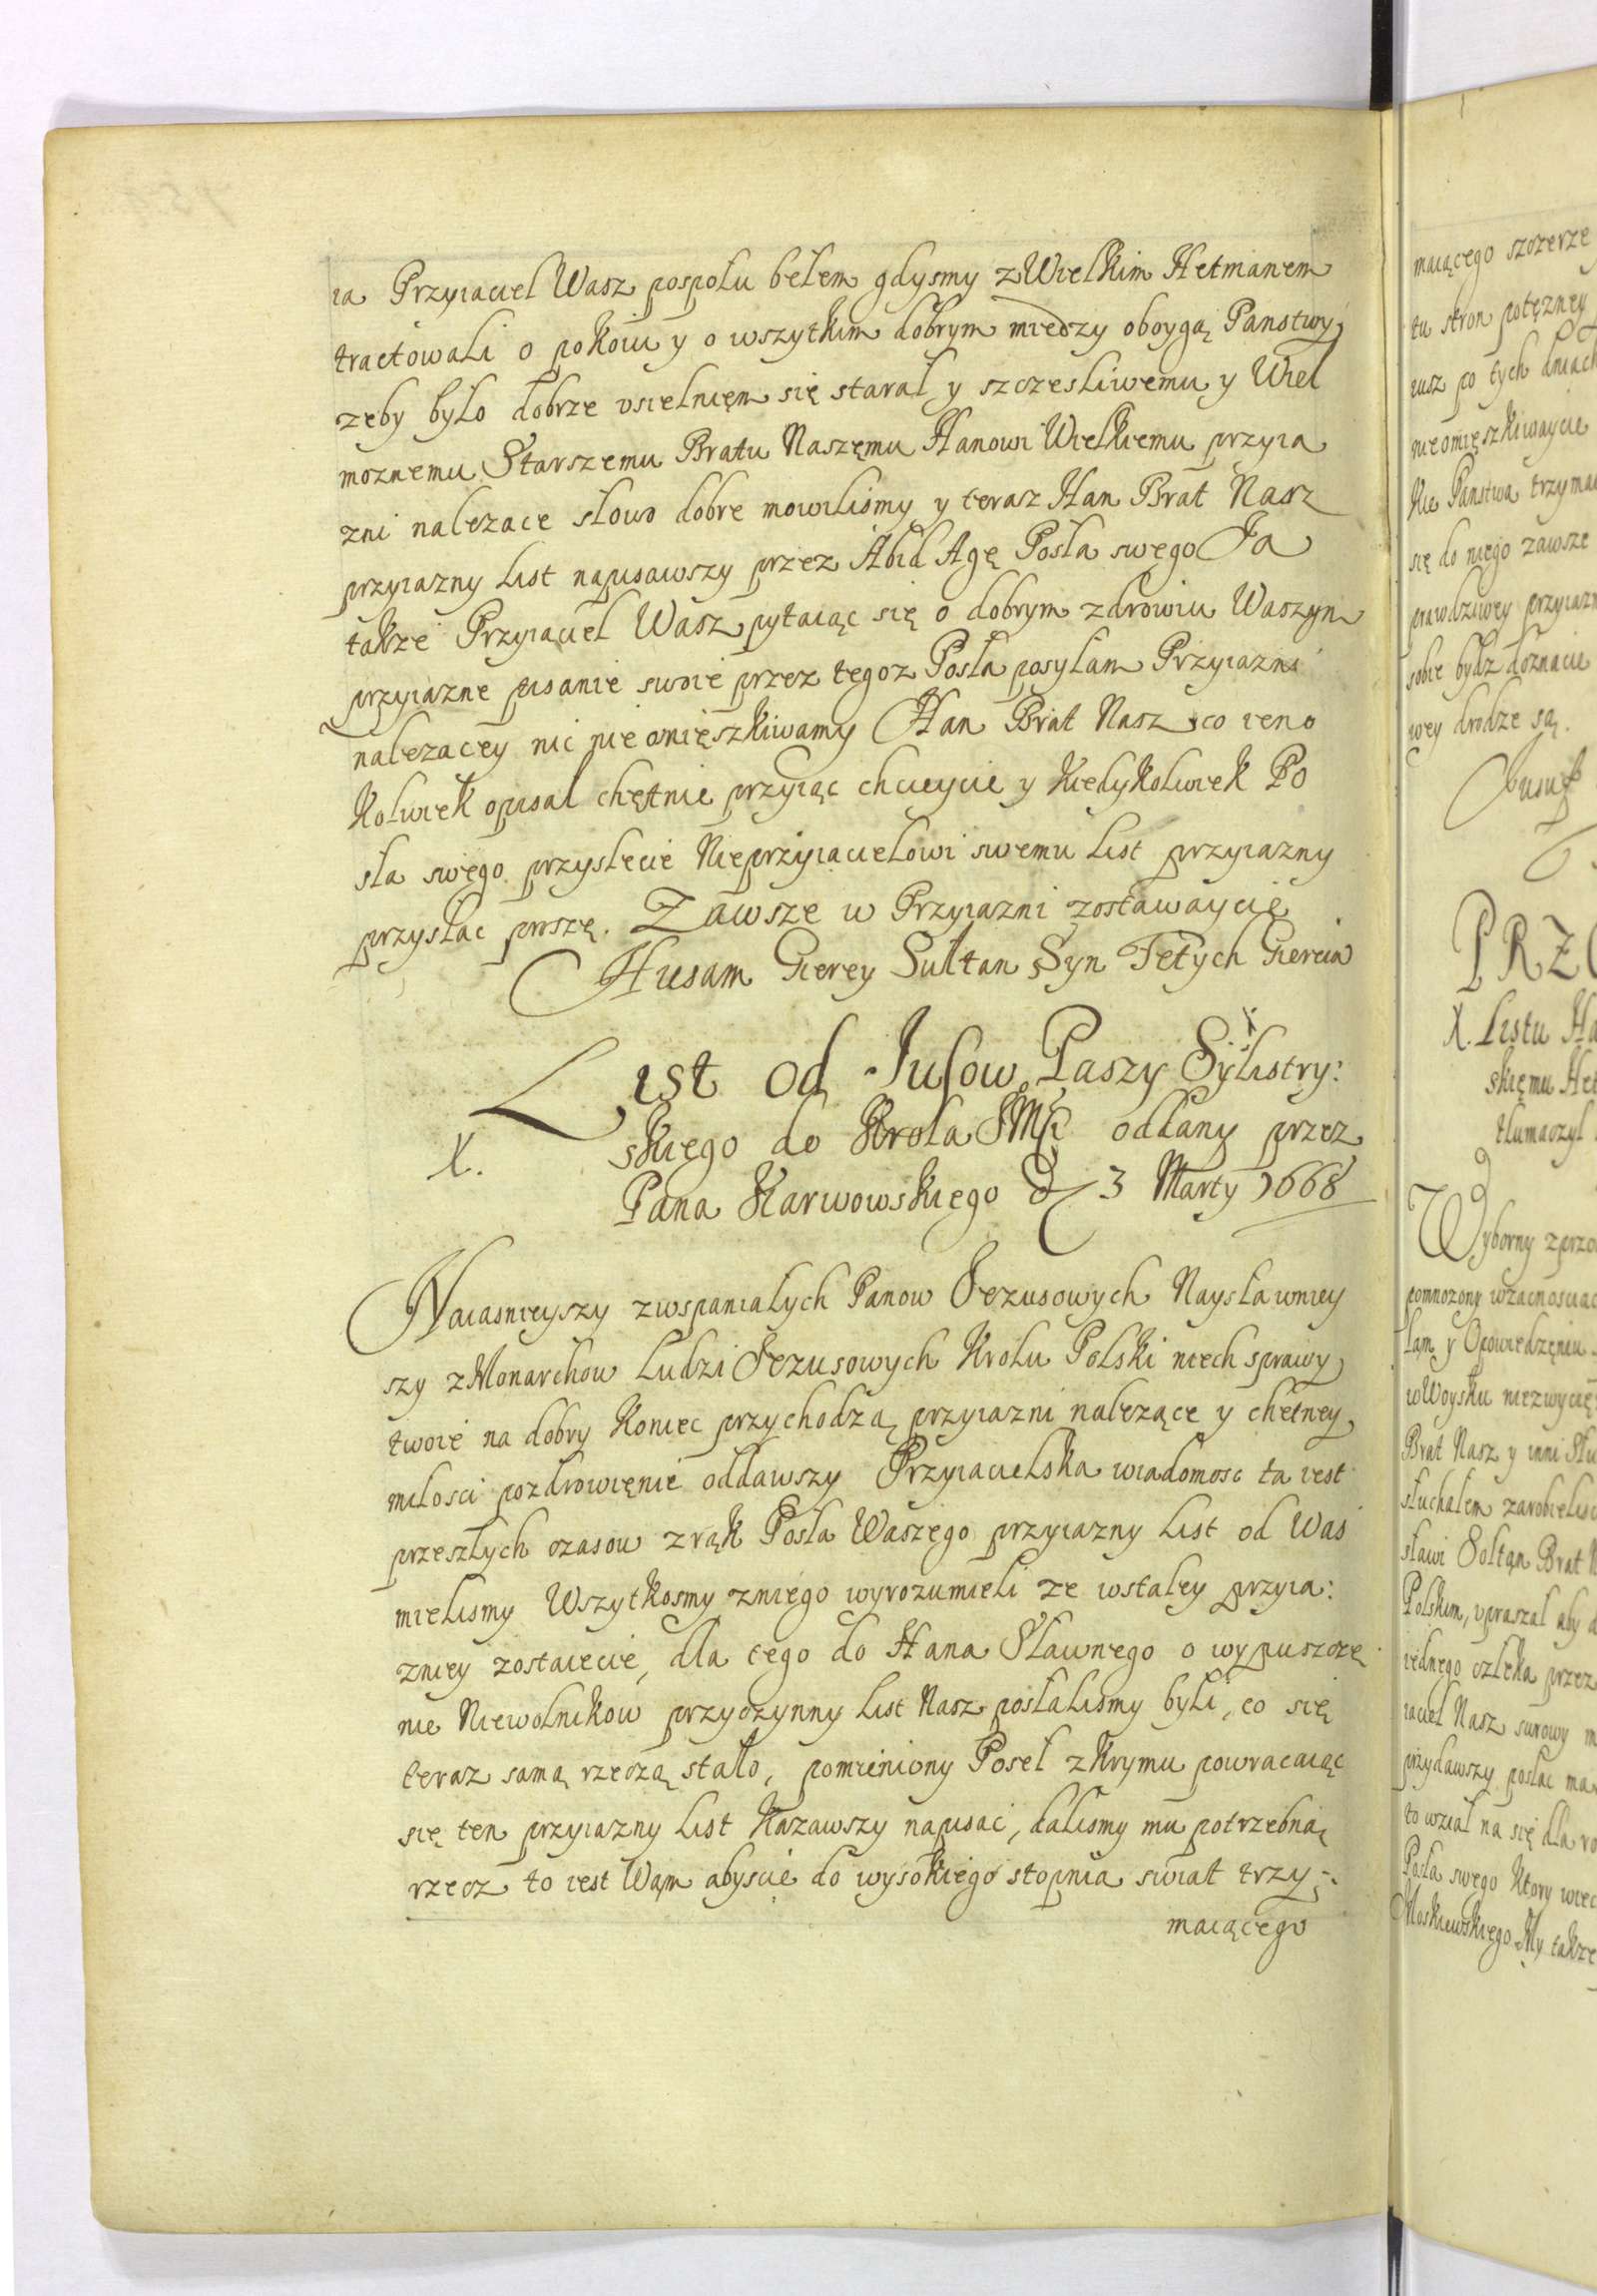 ia Przyiaciel Wasz pospolu belem gdysmy z Wielkim Hetmanem
tractowali o pokoiu y o wszytkim dobrym miedzy oboygą Panstwy
zeby bylo dobrze usielniem się staral y szczesliwemu y Wiel
moznemu Starszemu Bratu Naszęmu Hanowi Wielkiemu przyia
zni nalezace słowo dobre mowilismy y teraz Han Brat Nasz
przyiazny List napisawszy przez Abid Agę Posla swego Ja
takze Przyiaciel Wasz pytaiąc się o dobrym zdrowiu Waszym
przyiazne pisanie swoie przez tegoz Posla posylam Przyiazni
nalezacey nic nie omięszkiwamy Han Brat Nasz co ieno
kolwiek opisal chętnie przyiąc chcieycie y kiedykolwiek Po
sla swego przyslecie Nieprzyiacielowi swemu List przyiazny
przysłac proszę. Zawsze w Przyiazni zostawaycie
Husam Gierey Sułtan Syn Fetych Giereia
List od Jusow Paszy Sylistry:
X. skiego do Krola JMsci oddany przez
Pana Karwowskiego D 3 Marty 1668
Naiasnieyszy z wspanialych Panow Jezusowych Naysławniey
szy z Monarchow Ludzi Jezusowych Krolu Polski niech sprawy
twoie na dobry koniec przychodzą przyiazni nalezące y chetney
milosci pozdrowięnie oddawszy Przyiacielska wiadomosc ta iest
przeszłych czasow z rąk Posla Waszego przyiazny List od Was
mielismy Wszytkosmy z niego wyrozumieli ze w stałey przyia:
zniey zostaiecie, dla tego do Hana Sławnego o wypuszczę
nie Niewolnikow przyczynny List Nasz poslalismy byli, co się
teraz samą rzeczą stało, pomieniony Posel z Krymu powracaiąc
się ten przyiazny List kazawszy napisac, dalismy mu potrzebną
rzecz to iest Wam abyscie do wysokiego stopnia swiat trzy:
maiącego
maiącego szczerze
tu stron potęzney
iusz po tych dniach
nieomięszkiwaycie
kie Panstwa trzyma
się do niego zawsze
prawdziwey przyiazn
sobie bydz doznacie
wey drodze są.
Jusuf
PRZ
X. Listu Ha
skięmu Het
tlumaczyl
Wyborny z prze
pomnozony wzacnosciac
łam y Opowiedzęniu
w Woysku niezwycię
Brat Nasz y inni Słu
słuchalem zarobielisc
slawi Soltan Brat N
Polskim, upraszal aby d
iednego czleka przez
iaciel Nasz surowy m
przydawszy poslac ma
to wzial na się dla ro
Posla swego ktory wiec
Moskiewskiego My takze